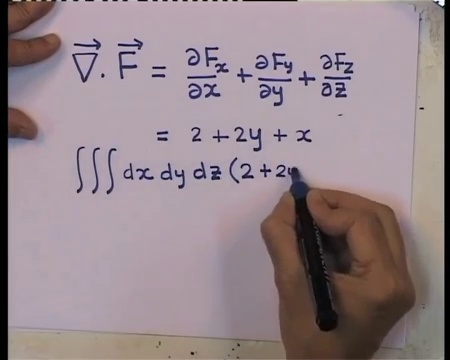 ∇⃗ · F⃗ = ∂Fx/∂x + ∂Fy/∂y + ∂Fz/∂z
= 2 + 2y + x
∫∫∫ dx dy dz (2 + 2y